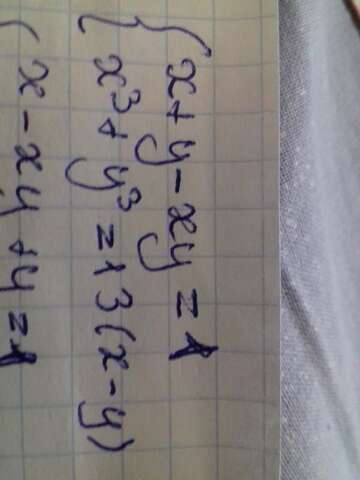 x+y-xy=1
x³+y³=13(x-y)
x-xy+y=1